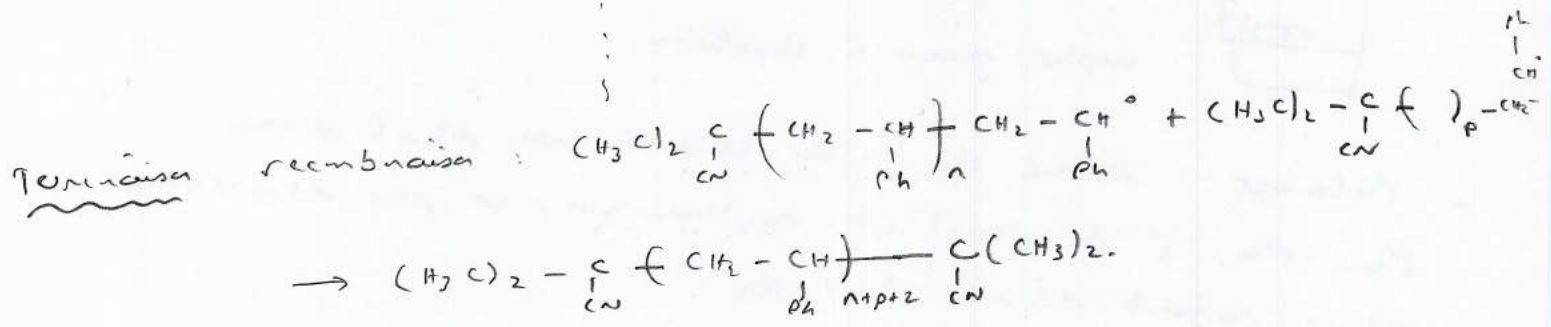 Terminaison recombinaison : (H3C)2 C(CN) -(CH2 - CH(Ph))n- CH2 - CH°(Ph) + (H3C)2 - C(CN) -( )p -CH2- CH°(Ph)
→ (H3C)2 - C(CN) -(CH2 - CH(Ph))n+p+2 — C(CN)(CH3)2.